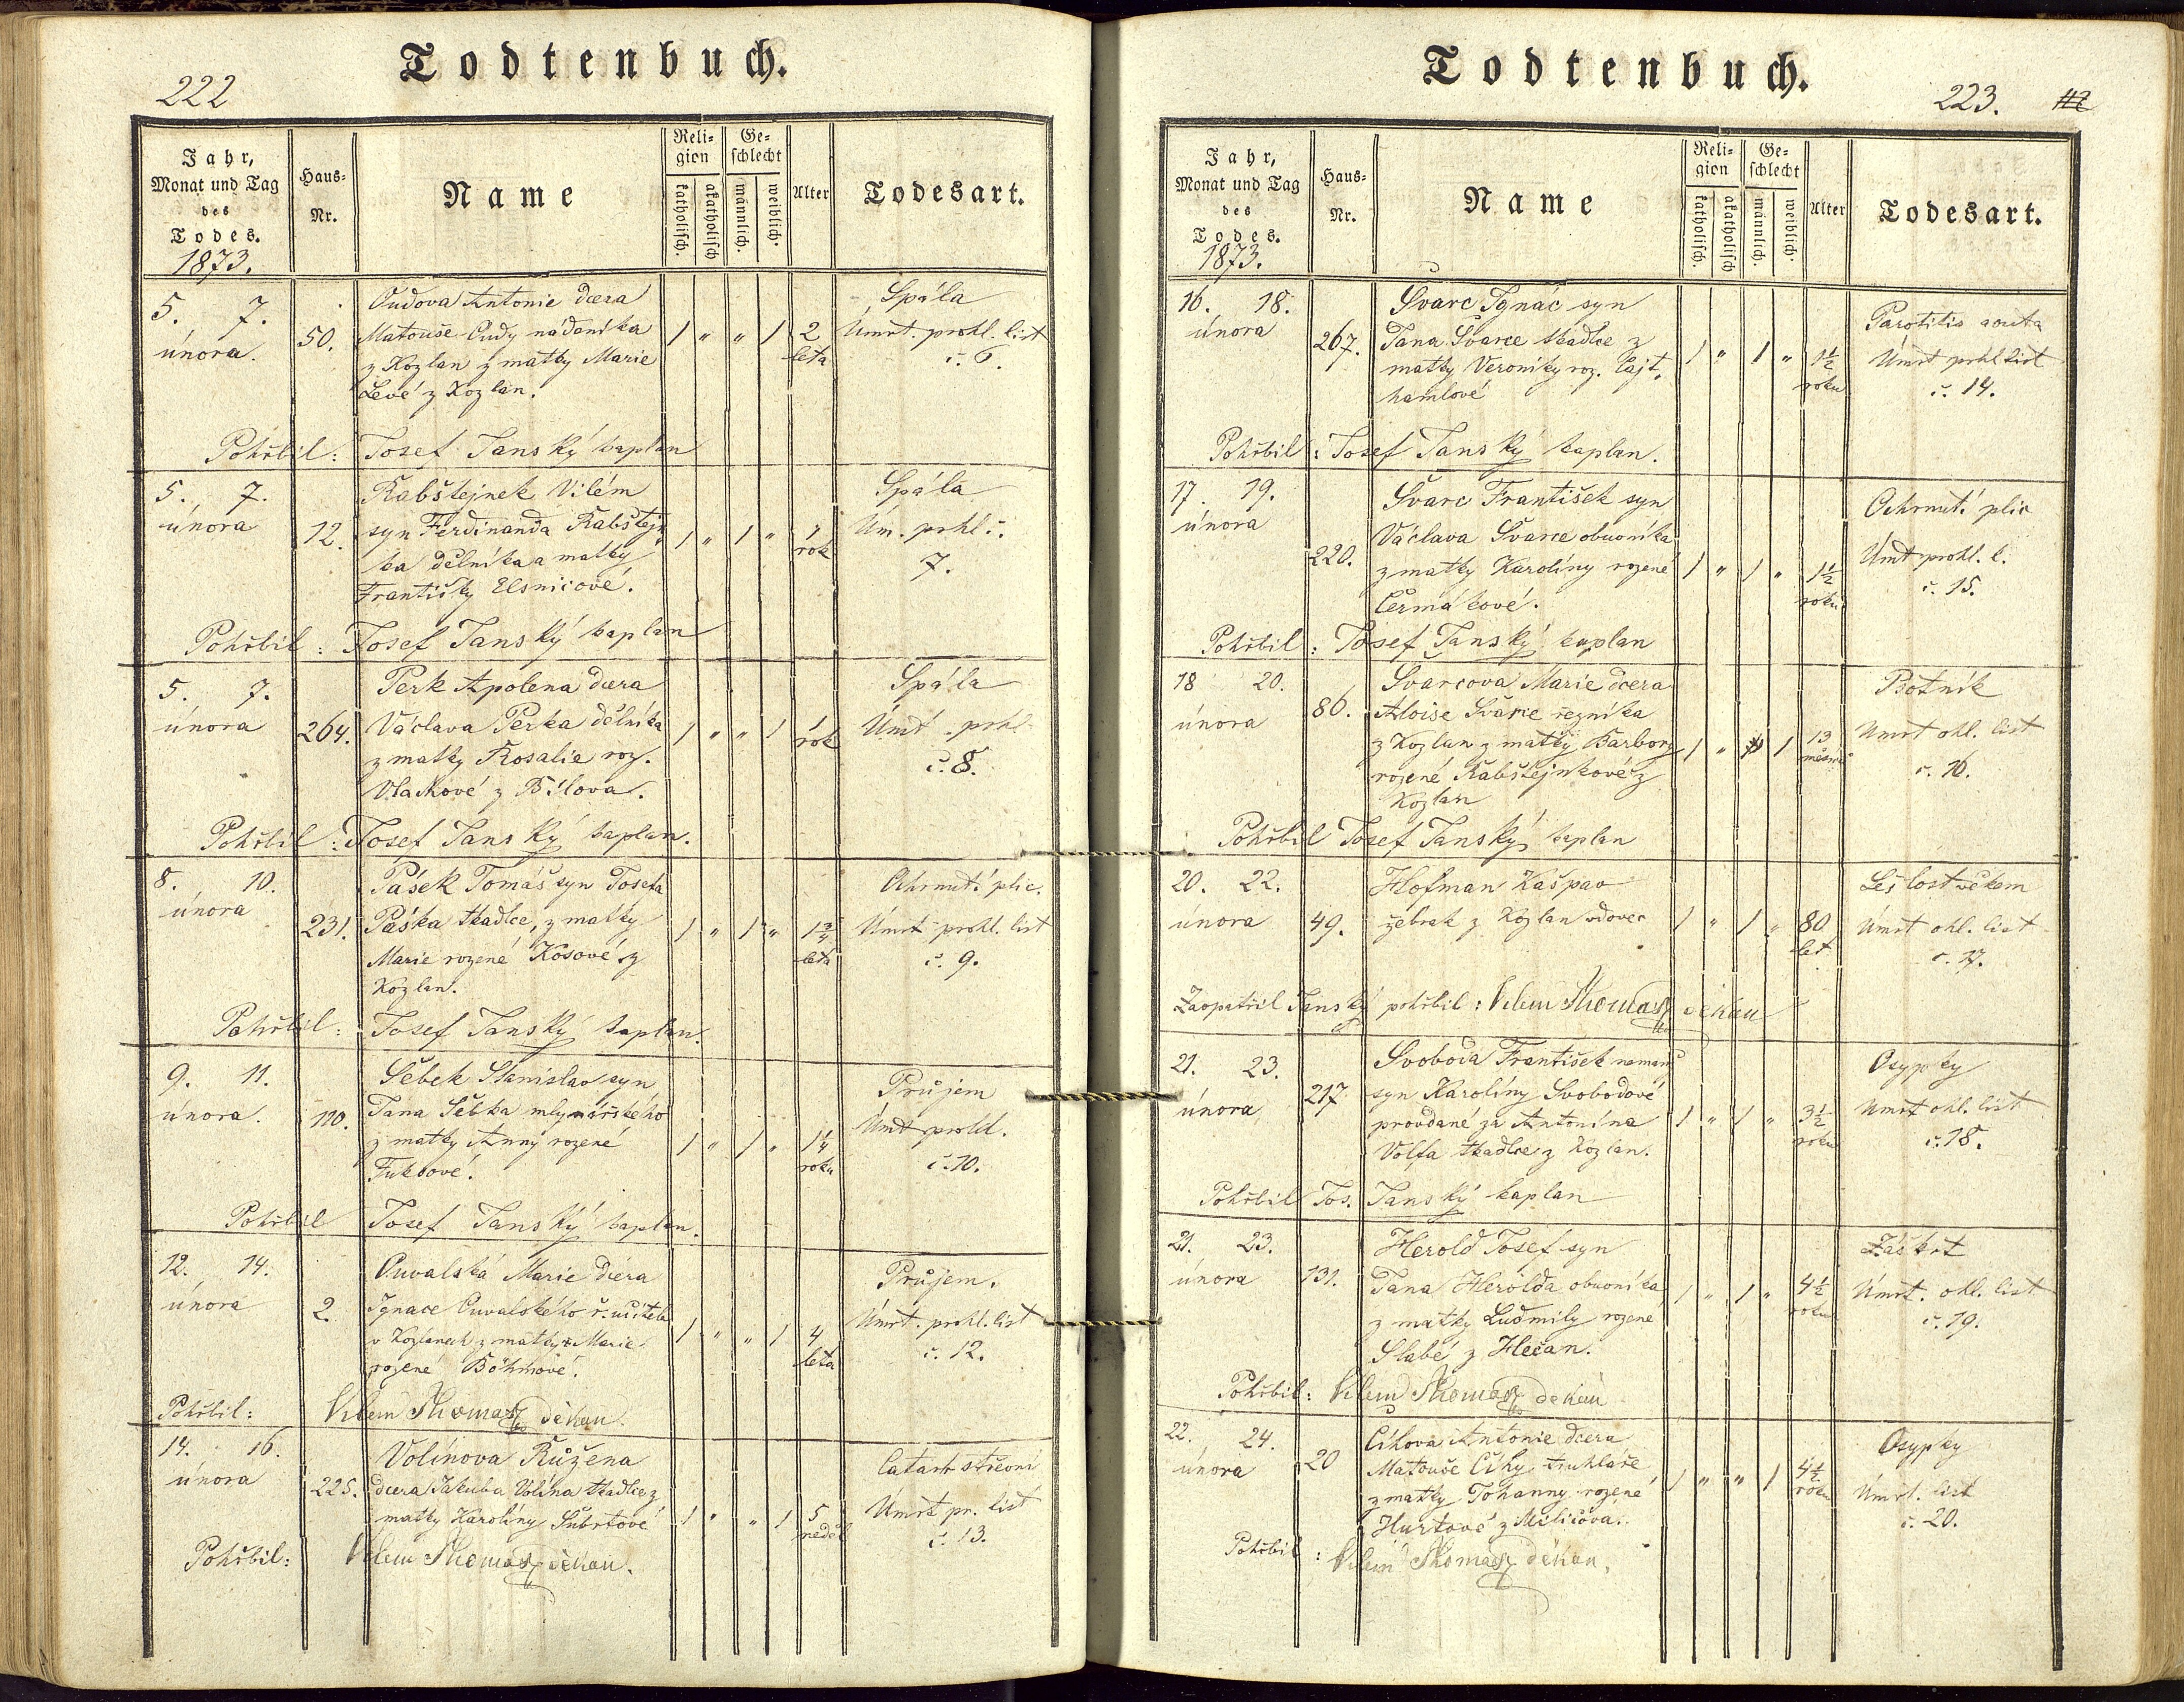 222
Todtenbuch.
Jahr,
Monat und Tag
des
Todes.
1873.
Haus-
Nr.
Name
Reli-
gion
katholisch.
akatholisch
Ge-
schlecht
männlich.
weiblich.
Alter
Todesart.
5. 7.
února.
50.
Oudova Antonie dcera
Matouše Oudy nádeníka
z Kozlan z matky Marie
Levé z Kozlan.
1 " " 1
2
leta
Spála
Úmrt. prohl. list
č. 6.
Pohřbil: Josef Janský kaplan
5. 7.
února
12.
Rabštejnek Vilém
syn Ferdinanda Rabštejn
ka dělníka a matky
Františky Elsnicové.
1 " 1 "
1
rok
Spála
Úm. prhl. č.
7.
Pohřbil: Josef Janský kaplan
5. 7.
února
264.
Perk Apolena dcera
Václava Perka dělníka
z matky Rosalie roz.
Vlackové z Bílova.
1 " " 1
1
rok
Spála
Úmt. prhl
č. 8.
Pohřbil: Josef Janský kaplan.
8. 10.
února
231.
Pásek Tomáš syn Josefa
Páska tkadlce, z matky
Marie rozené Kosové z
Kozlan.
1 " 1 "
1 3/4
leta
Ochrnutí plic.
Úmrt prohl. list
č. 9.
Pohřbil: Josef Janský kaplan.
9. 11.
února.
110.
Šebek Stanislav syn
Jana Šebka mlynářského
z matky Anny rozené
Fuksové.
1 " 1 "
1 1/4
roku
Průjem
Úmt prohl.
č. 10.
Pohřbil Josef Janský kaplan.
12. 14.
února
2.
Ouvalská Marie dcera
Ignace Ouvalského ř. učitele
v Kozlanech z matky Marie
rozené Böhmové.
1 " " 1
4
leta
Průjem.
Úmrt. prohl. list
č. 12.
Pohřbil: Vilem Thomas děkan.
14. 16.
února
225.
Volínova Růžena
dcera Jakuba Volína tkadlce z
matky Karolíny Šubrtové
1 " " 1
5
neděl
Catarh střevní
Úmrt pr. list
č. 13.
Pohřbil: Vilem Thomas děkan.
Todtenbuch.
223.
Jahr,
Monat und Tag
des
Todes.
1873.
Haus-
Nr.
Name
Reli-
gion
katholisch.
akatholisch
Ge-
schlecht
männlich.
weiblich.
Alter
Todesart.
16. 18.
února
267.
Švarc Ignác syn
Jana Švarce tkadlce z
matky Veroniky roz. Lajt-
hamlové
1 " 1 "
1 1/2
roku
Parotitis acuta
Úmrt prhl list
č. 14.
Pohřbil: Josef Janský kaplan.
17. 19.
února
220.
Švarc František syn
Václava Švarce obuvníka
z matky Karolíny rozené
Čermákové.
1 " 1 "
1 1/2
roku
Ochrnutí plic
Úmt prohl. l.
č. 15.
Pohřbil: Josef Janský kaplan
18 20.
února
86.
Švarcova Marie dcera
Aloise Švarce řezníka
z Kozlan z matky Barbory
rozené Rabštejnkové z
Kozlan
1 " 1
13
měsíců
Psotník
Úmrt ohl. list
č. 16.
Pohřbil Josef Janský kaplan
20. 22.
února
49.
Hofman Kašpar
žebrak z Kozlan vdovec
1 " 1 "
80
let
Sešlost věkem
Úmrt ohl. list
č. 17.
Zaopatřil Janský pohřbil: Vilem Thomas děkan
21. 23.
února
217
Svoboda František neman
syn Karolíny Svobodové
provdané za Antonína
Volfa tkadlce z Kozlan.
1 " 1 "
3 1/2
roku
Osypky
Úmrt ohl. list
č. 18.
Pohřbil Jos. Janský kaplan
21. 23.
února
131.
Herold Josef syn
Jana Herolda obuvníka
z matky Ludmily rozené
Slabé z Hlečan.
1 " 1 "
4 1/2
roku
Záškrt
Úmrt. ohl. list
č. 19.
Pohřbil: Vilem Thomas děkan
22. 24.
února
20
Cíhova Antonie dcera
Matouše Cíhy truhláře
z matky Johanny rozené
Hurtové z Milíčova.
1 " " 1
4 1/2
roku
Osypky
Úmrt. list
č. 20.
Pohřbil: Vilém Thomas děkan.